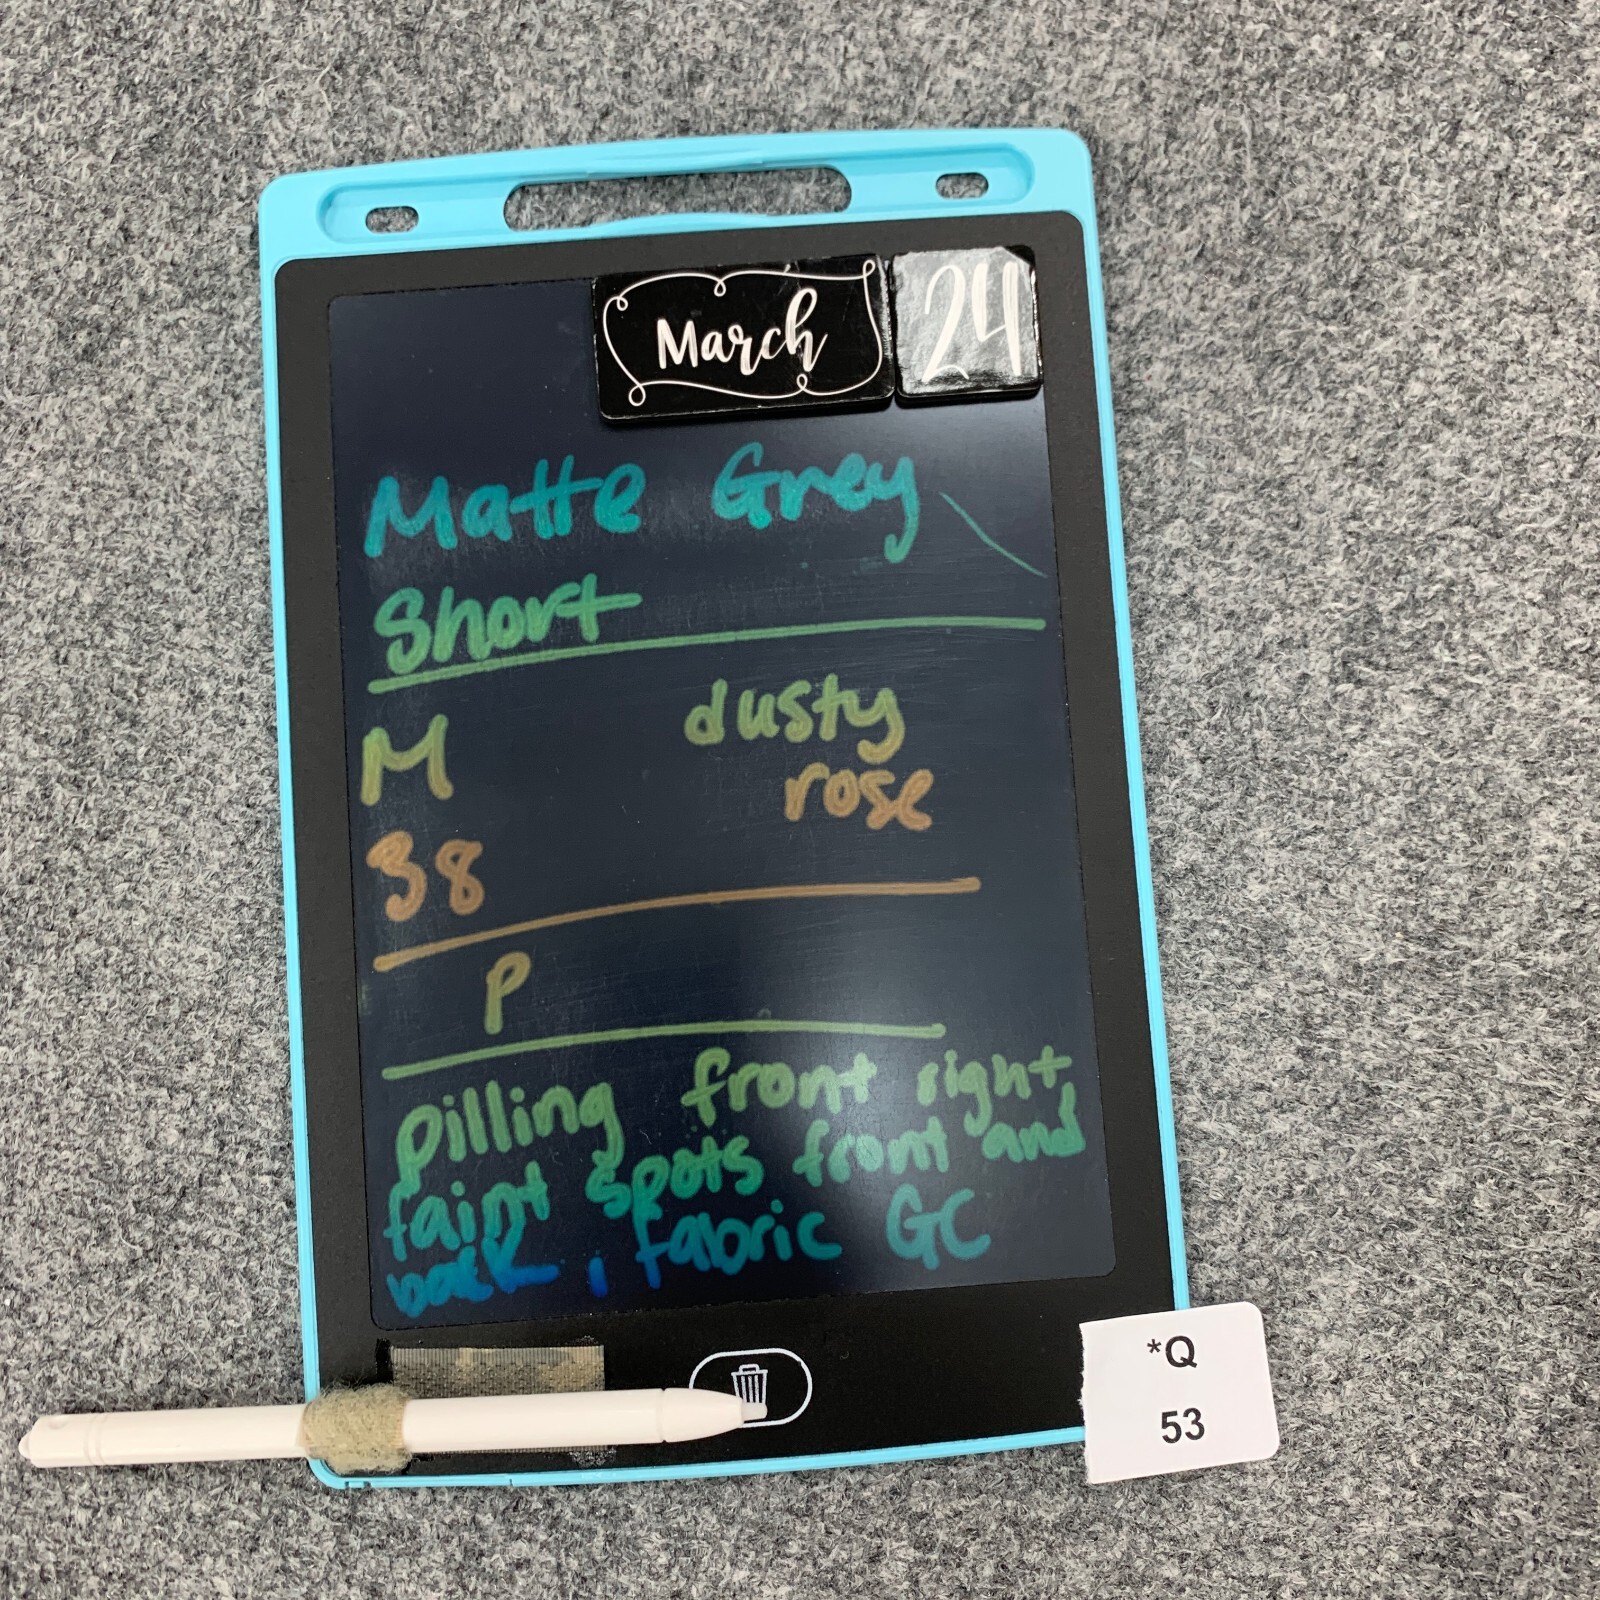 March 24
Matte Grey
Short
M dusty
rose
38
P
pilling front right
faint spots front and
back, fabric GC
*Q
53